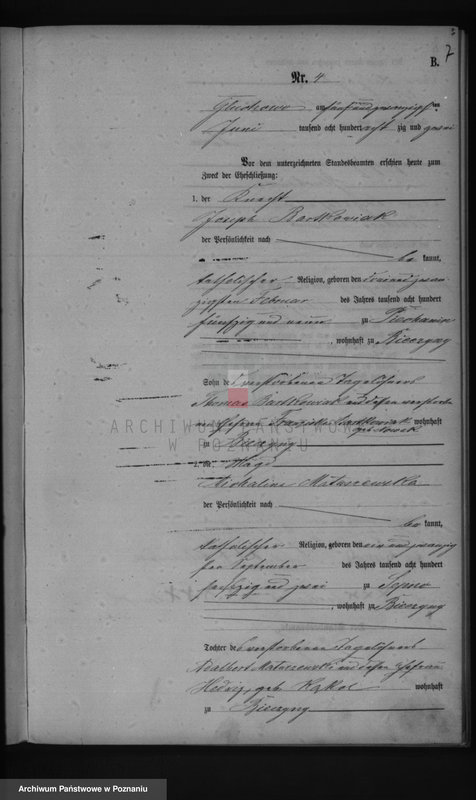 7
B.
Nr. 4
Gluchowo am fünf und zwanzigsten
Juni tausend acht hundert acht zig und zwei
Vor dem unterzeichneten Standesbeamten erschien heute zum
Zweck der Eheschließung:
1. der Knecht
Joseph Bartkowiak
der Persönlichkeit nach
be kannt,
katholischer Religion, geboren den drei und zwan-
zigsten Februar des Jahres tausend acht hundert
fünfzig und neun zu Piechanin
, wohnhaft zu Bieczyny
Sohn des verstorbenen Tagelöhners
Thomas Bartkowiak und dessen
Ehefrau Franziska Bartkowiak wohnhaft
geb. Nowak
zu Bieczyny
2. die Magd
Michalina Mataszewska
der Persönlichkeit nach
be kannt,
katholischer Religion, geboren den ein und zwanzig
sten September des Jahres tausend acht hundert
sechszig und zwei zu Sepno
, wohnhaft zu Bieczyny
Tochter des verstorbenen Tagelöhners
Adalbert Mataszewski und dessen Ehefrau
Hedwig, geb. wohnhaft
zu Bieczyny
ARCHIWUM PAŃSTWOWE
W POZNANIU
Archiwum Państwowe w Poznaniu